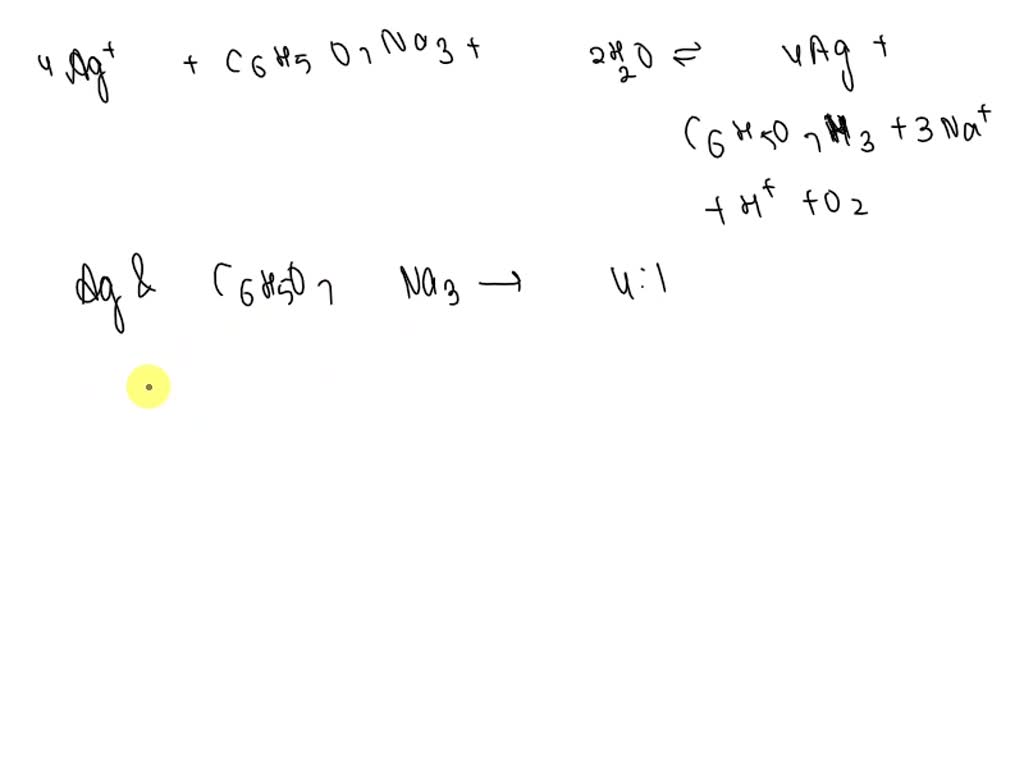 4Ag⁺ + C6H5O7Na3 + 2H2O ⇌ 4Ag +
C6H5O7H3 + 3Na⁺
+ H⁺ + O2
Ag & C6H5O7 Na3 → 4:1